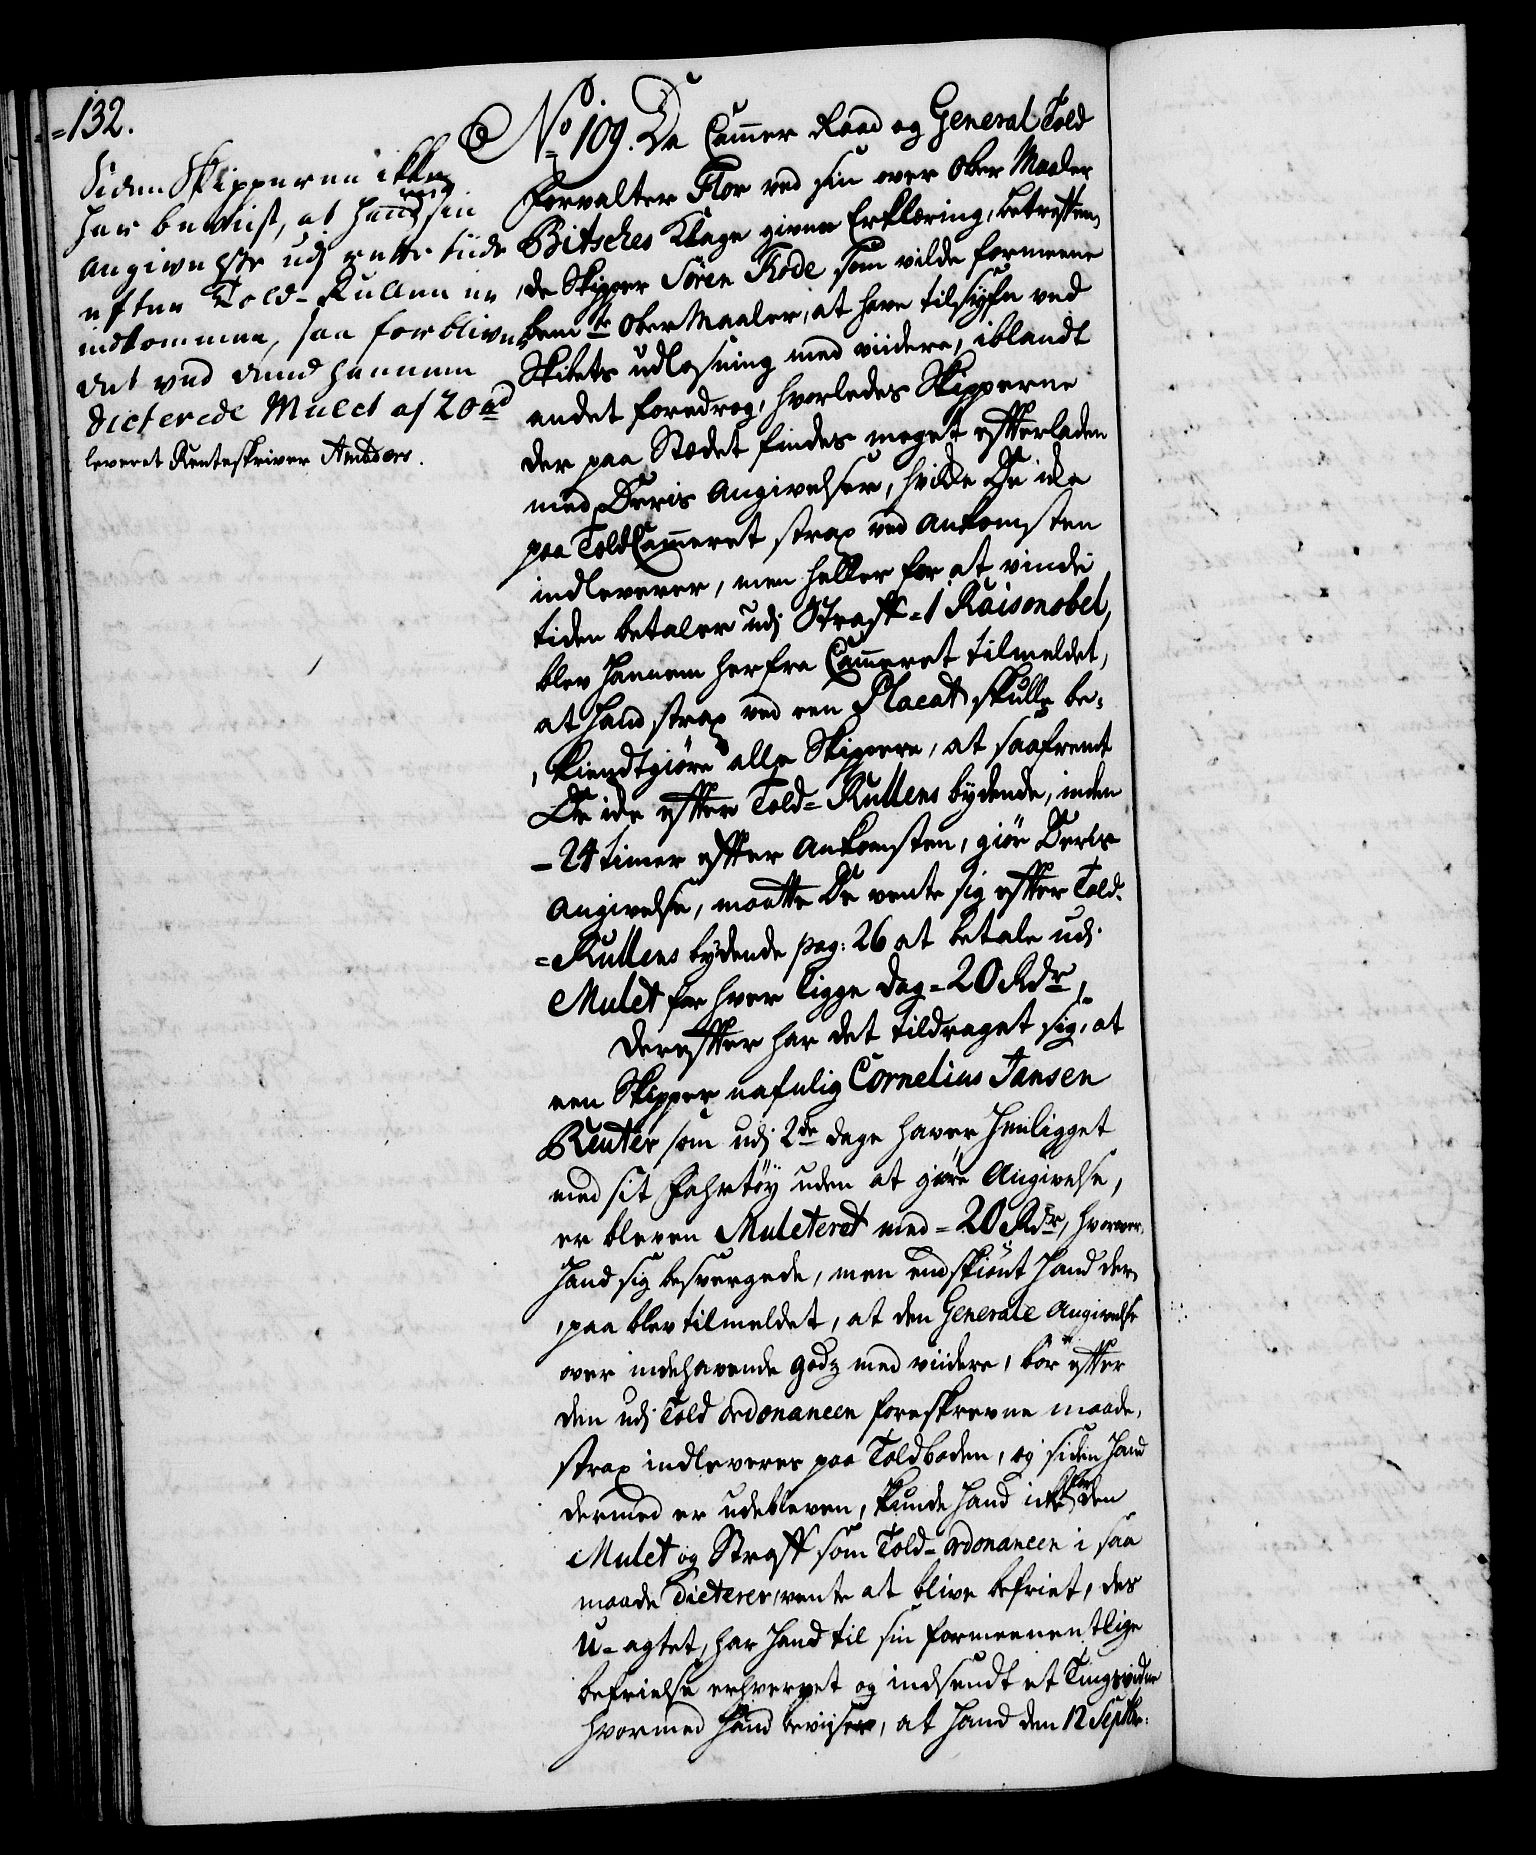 =132.
Siden Skipperen ikke
har beviist, at hand med sin
angivelse udj rette tiide
efter Told-Rullen er
indkommen, saa forbliver
det ved dend hannem
dicterede Mulct af 20 rd
leveret Renteskriver
No 109. Da Cammer Raad og General Told
Forvalter Flor ved sin over Ober Maaler
Bitsches Klage given Erklæring, betreffen,
,de Skipper Sören Flode som vilde formeene
bemte Ober Maaler, at have tilsyn ved
Skibets udlosning med viidere, iblandt
andet foredrog, hvorledes Skipperne
der paa Stædet findes meget efterladen
med Deris Angivelser, hvilke De icke
paa ToldCammeret strax ved ankomsten
indleverer, men heller for at vinde
tiden betaler udj Straff - 1 Roisonobel,
blev hannem herfra Cammeret tilmeldet,
at hand strax ved een Placat skulle be,
,kiendtgiöre alle Skippere, at saafremt
De icke efter Told-Rullens bydende, inden
- 24 timer efter Ankomsten, giör Deris
Angivelse, maatte De vente sig efter Told-
=Rullens bydende pag: 26 at betale udj
Mulct for hver ligge Dag - 20 Rdr,
Derefter har det tildraget sig, at
een Skipper nafnlig Cornelius Jansen
Reuter som udj 2de dage haver henligget
med sit Fahrtöy uden at giöre Angivelse,
er bleven Mulcteret med - 20 Rdr, hvorover
hand sig besvergede, men endskiönt hand der,
,paa blev tilmeldet, at den Generale Angivelse
over indehavende godz med viidere, bör efter
den udj Told ordonancen foreskrevne maade,
strax indleveres paa Toldboden, og siden hand
dermed er udebleven, kunde hand icke for den
Mulct og Straff som Told-ordonancen i saa
maade dicterer, vente at blive befriet, des
u-agtet, har hand til sin formeenentlige
befrielse erhvervet og indsendt et Tingsvidne
hvormed hand beviiser, at hand den 12 Septbr: